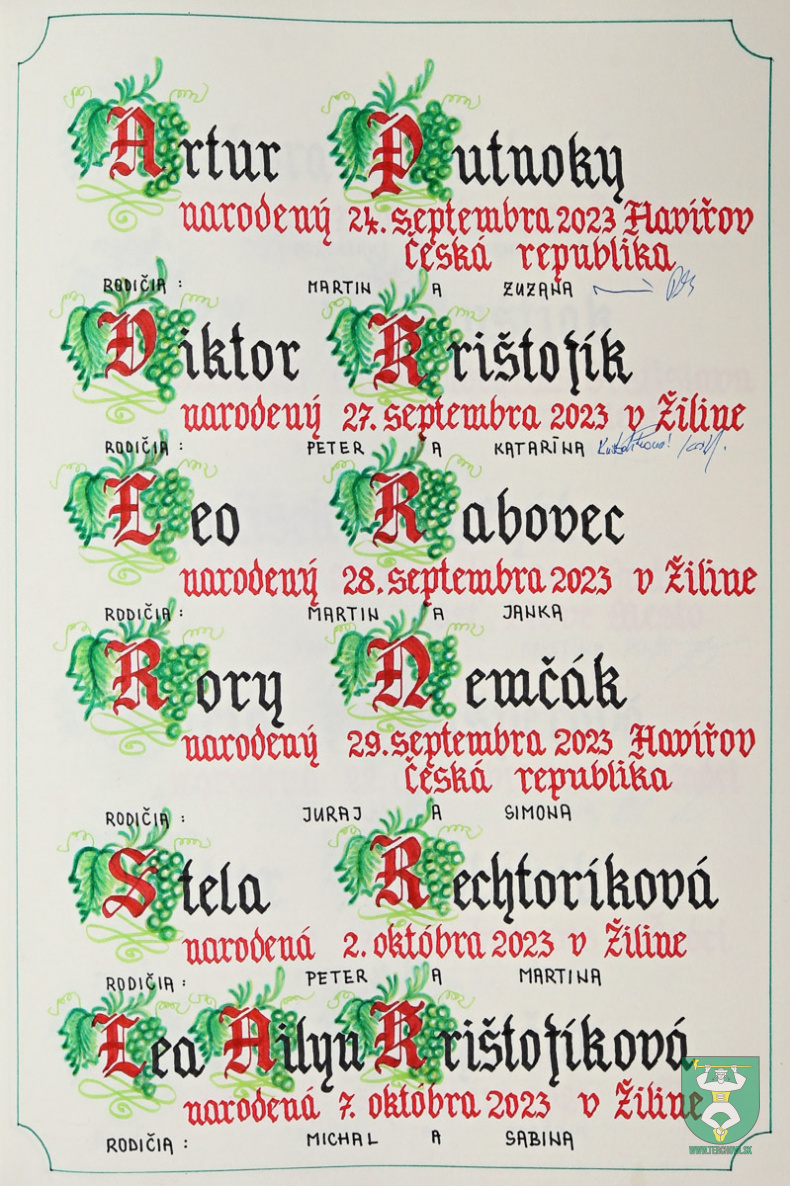 Artur Putnoky
narodený 24. septembra 2023 Havířov
česká republika
RODIČIA : MARTIN A ZUZANA
Viktor Krištofík
narodený 27. septembra 2023 v Žiline
RODIČIA : PETER A KATARÍNA
Leo Rabovec
narodený 28. septembra 2023 v Žiline
RODIČIA : MARTIN A JANKA
Rory Nemčák
narodený 29. septembra 2023 Havířov
česká republika
RODIČIA : JURAJ A SIMONA
Stela Rechtoríková
narodená 2. októbra 2023 v Žiline
RODIČIA : PETER A MARTINA
Lea Ailyn Krištofíková
narodená 7. októbra 2023 v Žiline
RODIČIA : MICHAL A SABINA
WWW.TERCHOVA.SK